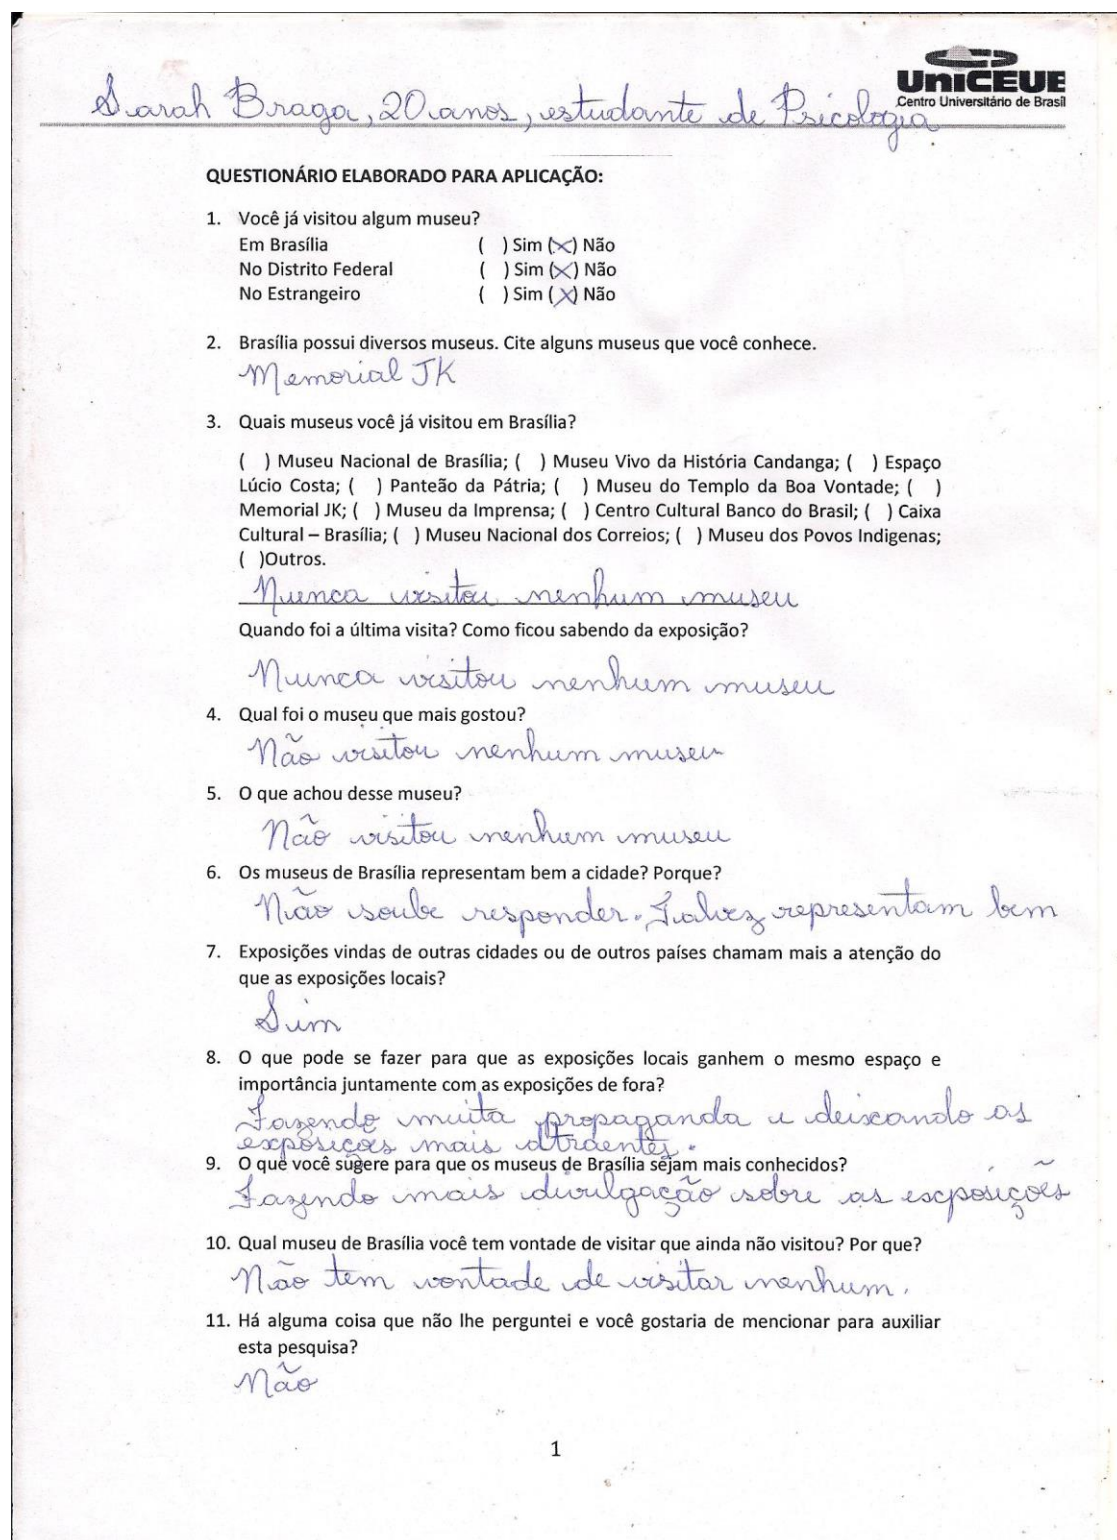 UniCEUB
Centro Universitário de Brasíl
Sarah Braga, 20 anos, estudante de Psicologia
QUESTIONÁRIO ELABORADO PARA APLICAÇÃO:
1. Você já visitou algum museu?
Em Brasília ( ) Sim (X) Não
No Distrito Federal ( ) Sim (X) Não
No Estrangeiro ( ) Sim (X) Não
2. Brasília possui diversos museus. Cite alguns museus que você conhece.
Memorial JK
3. Quais museus você já visitou em Brasília?
( ) Museu Nacional de Brasília; ( ) Museu Vivo da História Candanga; ( ) Espaço
Lúcio Costa; ( ) Panteão da Pátria; ( ) Museu do Templo da Boa Vontade; ( )
Memorial JK; ( ) Museu da Imprensa; ( ) Centro Cultural Banco do Brasil; ( ) Caixa
Cultural – Brasília; ( ) Museu Nacional dos Correios; ( ) Museu dos Povos Indigenas;
( )Outros.
Nunca visitou nenhum museu
Quando foi a última visita? Como ficou sabendo da exposição?
Nunca visitou nenhum museu
4. Qual foi o museu que mais gostou?
Não visitou nenhum museu
5. O que achou desse museu?
Não visitou nenhum museu
6. Os museus de Brasília representam bem a cidade? Porque?
Não soube responder. Talvez representam bem
7. Exposições vindas de outras cidades ou de outros países chamam mais a atenção do
que as exposições locais?
Sim
8. O que pode se fazer para que as exposições locais ganhem o mesmo espaço e
importância juntamente com as exposições de fora?
Fazendo muita propaganda e deixando as
exposições mais atraentes.
9. O que você sugere para que os museus de Brasília sejam mais conhecidos?
Fazendo mais divulgação sobre as exposições
10. Qual museu de Brasília você tem vontade de visitar que ainda não visitou? Por que?
Não tem vontade de visitar nenhum.
11. Há alguma coisa que não lhe perguntei e você gostaria de mencionar para auxiliar
esta pesquisa?
Não
1